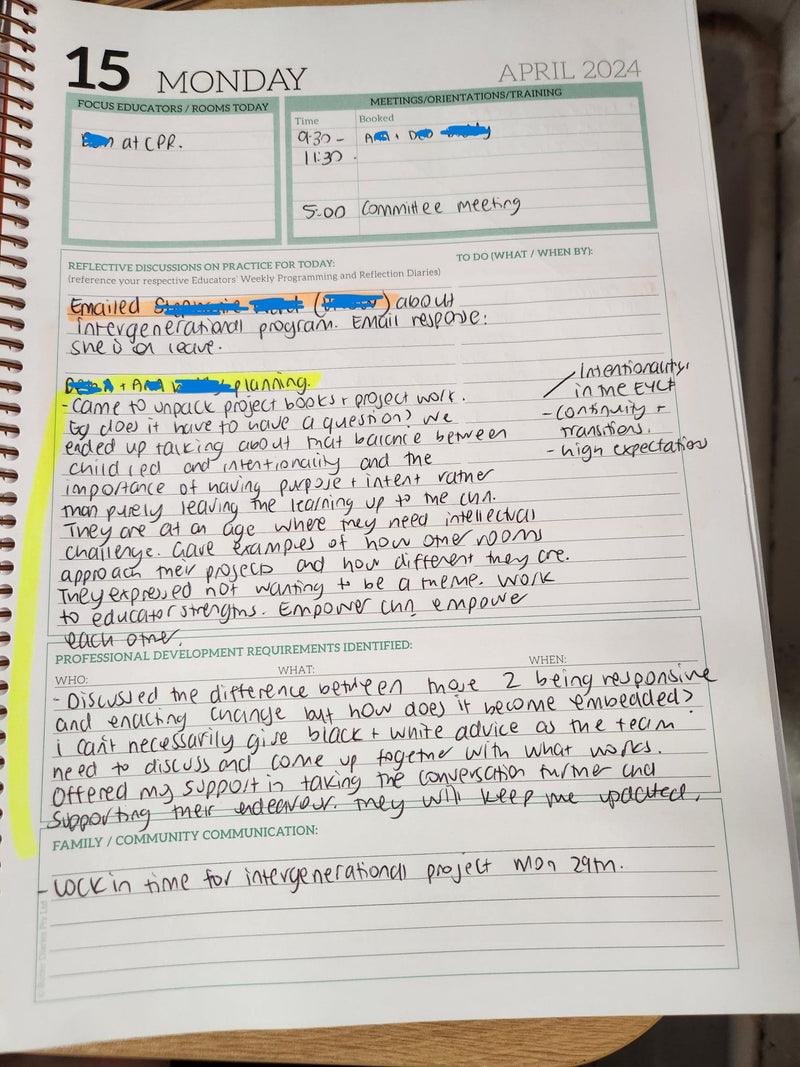 15 MONDAY
APRIL 2024
FOCUS EDUCATORS / ROOMS TODAY
at CPR.
MEETINGS/ORIENTATIONS/TRAINING
Time Booked
9:30 -
11:30 .
5:00 Committee meeting
REFLECTIVE DISCUSSIONS ON PRACTICE FOR TODAY:
(reference your respective Educators' Weekly Programming and Reflection Diaries)
TO DO (WHAT / WHEN BY):
Emailed ( ) about
intergenerational program. Email respose:
she is on leave.
+ planning.
- Came to unpack project books + project work.
Eg does it have to have a question? We
ended up talking about that balance between
child led and intentionality and the
importance of having purpose + intent rather
than purely leaving the learning up to the chn.
They are at an age where they need intellectual
challenge. Gave examples of how other rooms
approach their projects and how different they are.
They expressed not wanting to be a theme. Work
to educator strengths. Empower chn empower
each other.
Intentionality
in the EYLF
- Continuity +
transitions.
- high expectations
PROFESSIONAL DEVELOPMENT REQUIREMENTS IDENTIFIED:
WHO: WHAT: WHEN:
- Discussed the difference between those 2 being responsive
and enacting change but how does it become embedded?
i can't necessarily give black + white advice as the team
need to discuss and come up together with what works.
Offered my support in taking the conversation further and
supporting their endeavour. They will keep me updated.
FAMILY / COMMUNITY COMMUNICATION:
- Lock in time for intergenerational project Mon 29th.